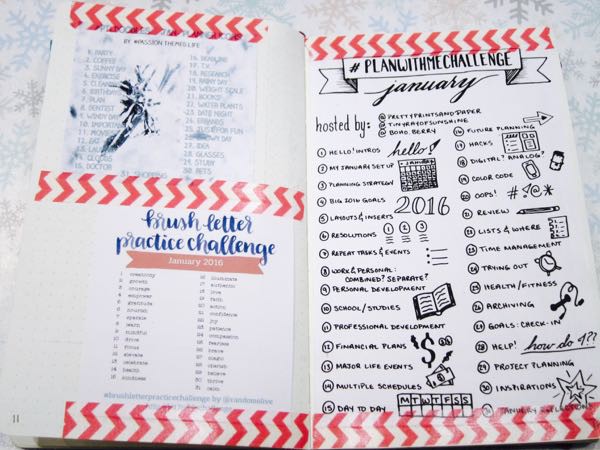 BY #PASSION THEMED LIFE
1. PARTY
2. COFFEE
3. SUNNY DAY
4. EXERCISE
5. CLEANING
6. BIRTHDAY
7. PLAN
8. DENTIST
9. WINDY DAY
10. IMPORTANT
11. MOVIES
12. EAT
14. CLOUDS
15. DOCTOR
16. DEADLINE
17. T.V.
18. RESEARCH
19. RAINY DAY
20. WEIGHT SCALE
21. BOOKS
22. WATER PLANTS
23. DATE NIGHT
24. ERRANDS
25. JUST FOR FUN
26. SNOWY DAY
27. IDEA
28. GLASSES
29. STUDY
30. PETS
31. SHOPPING
brush letter
practice challenge
January 2016
1 creativity
2 growth
3 courage
4 empower
5 gratitude
6 nourish
7 sparkle
8 learn
9 mindful
10 drive
11 focus
12 elevate
13 celebrate
14 breathe
15 kindness
16 illuminate
17 authentic
18 love
19 faith
20 action
21 confidence
22 joy
23 patience
24 compassion
25 fearless
26 brave
27 inspire
28 cherish
29 believe
30 thrive
31 calm
#brushletterpracticechallenge by @randomolive
11
#PLANWITHMECHALLENGE
january
hosted by:
@ PRETTYPRINTSANDPAPER
@ TINYRAYOFSUNSHINE
@ BOHO.BERRY
1 HELLO! INTROS hello!
2 MY JANUARY SET UP
3 PLANNING STRATEGY
4 BIG 2016 GOALS
2016
5 LAYOUTS & INSERTS
6 RESOLUTIONS 1 2 3
7 REPEAT TASKS & EVENTS
8 WORK & PERSONAL:
COMBINED? SEPARATE?
9 PERSONAL DEVELOPMENT
10 SCHOOL/STUDIES
11 PROFESSIONAL DEVELOPMENT
12 FINANCIAL PLANS $
13 MAJOR LIFE EVENTS
14 MULTIPLE SCHEDULES
15 DAY TO DAY M T W T F S S
16 FUTURE PLANNING
17 HACKS
18 DIGITAL? ANALOG?
19 COLOR CODE
20 OOPS! #%!@*
21 REVIEW
22 LISTS & WHERE
23 TIME MANAGEMENT
24 TRYING OUT
25 HEALTH/FITNESS
26 ARCHIVING
27 GOALS: CHECK-IN
28 HELP! how do I??
29 PROJECT PLANNING
30 INSPIRATIONS
31 JANUARY REFLECTIONS